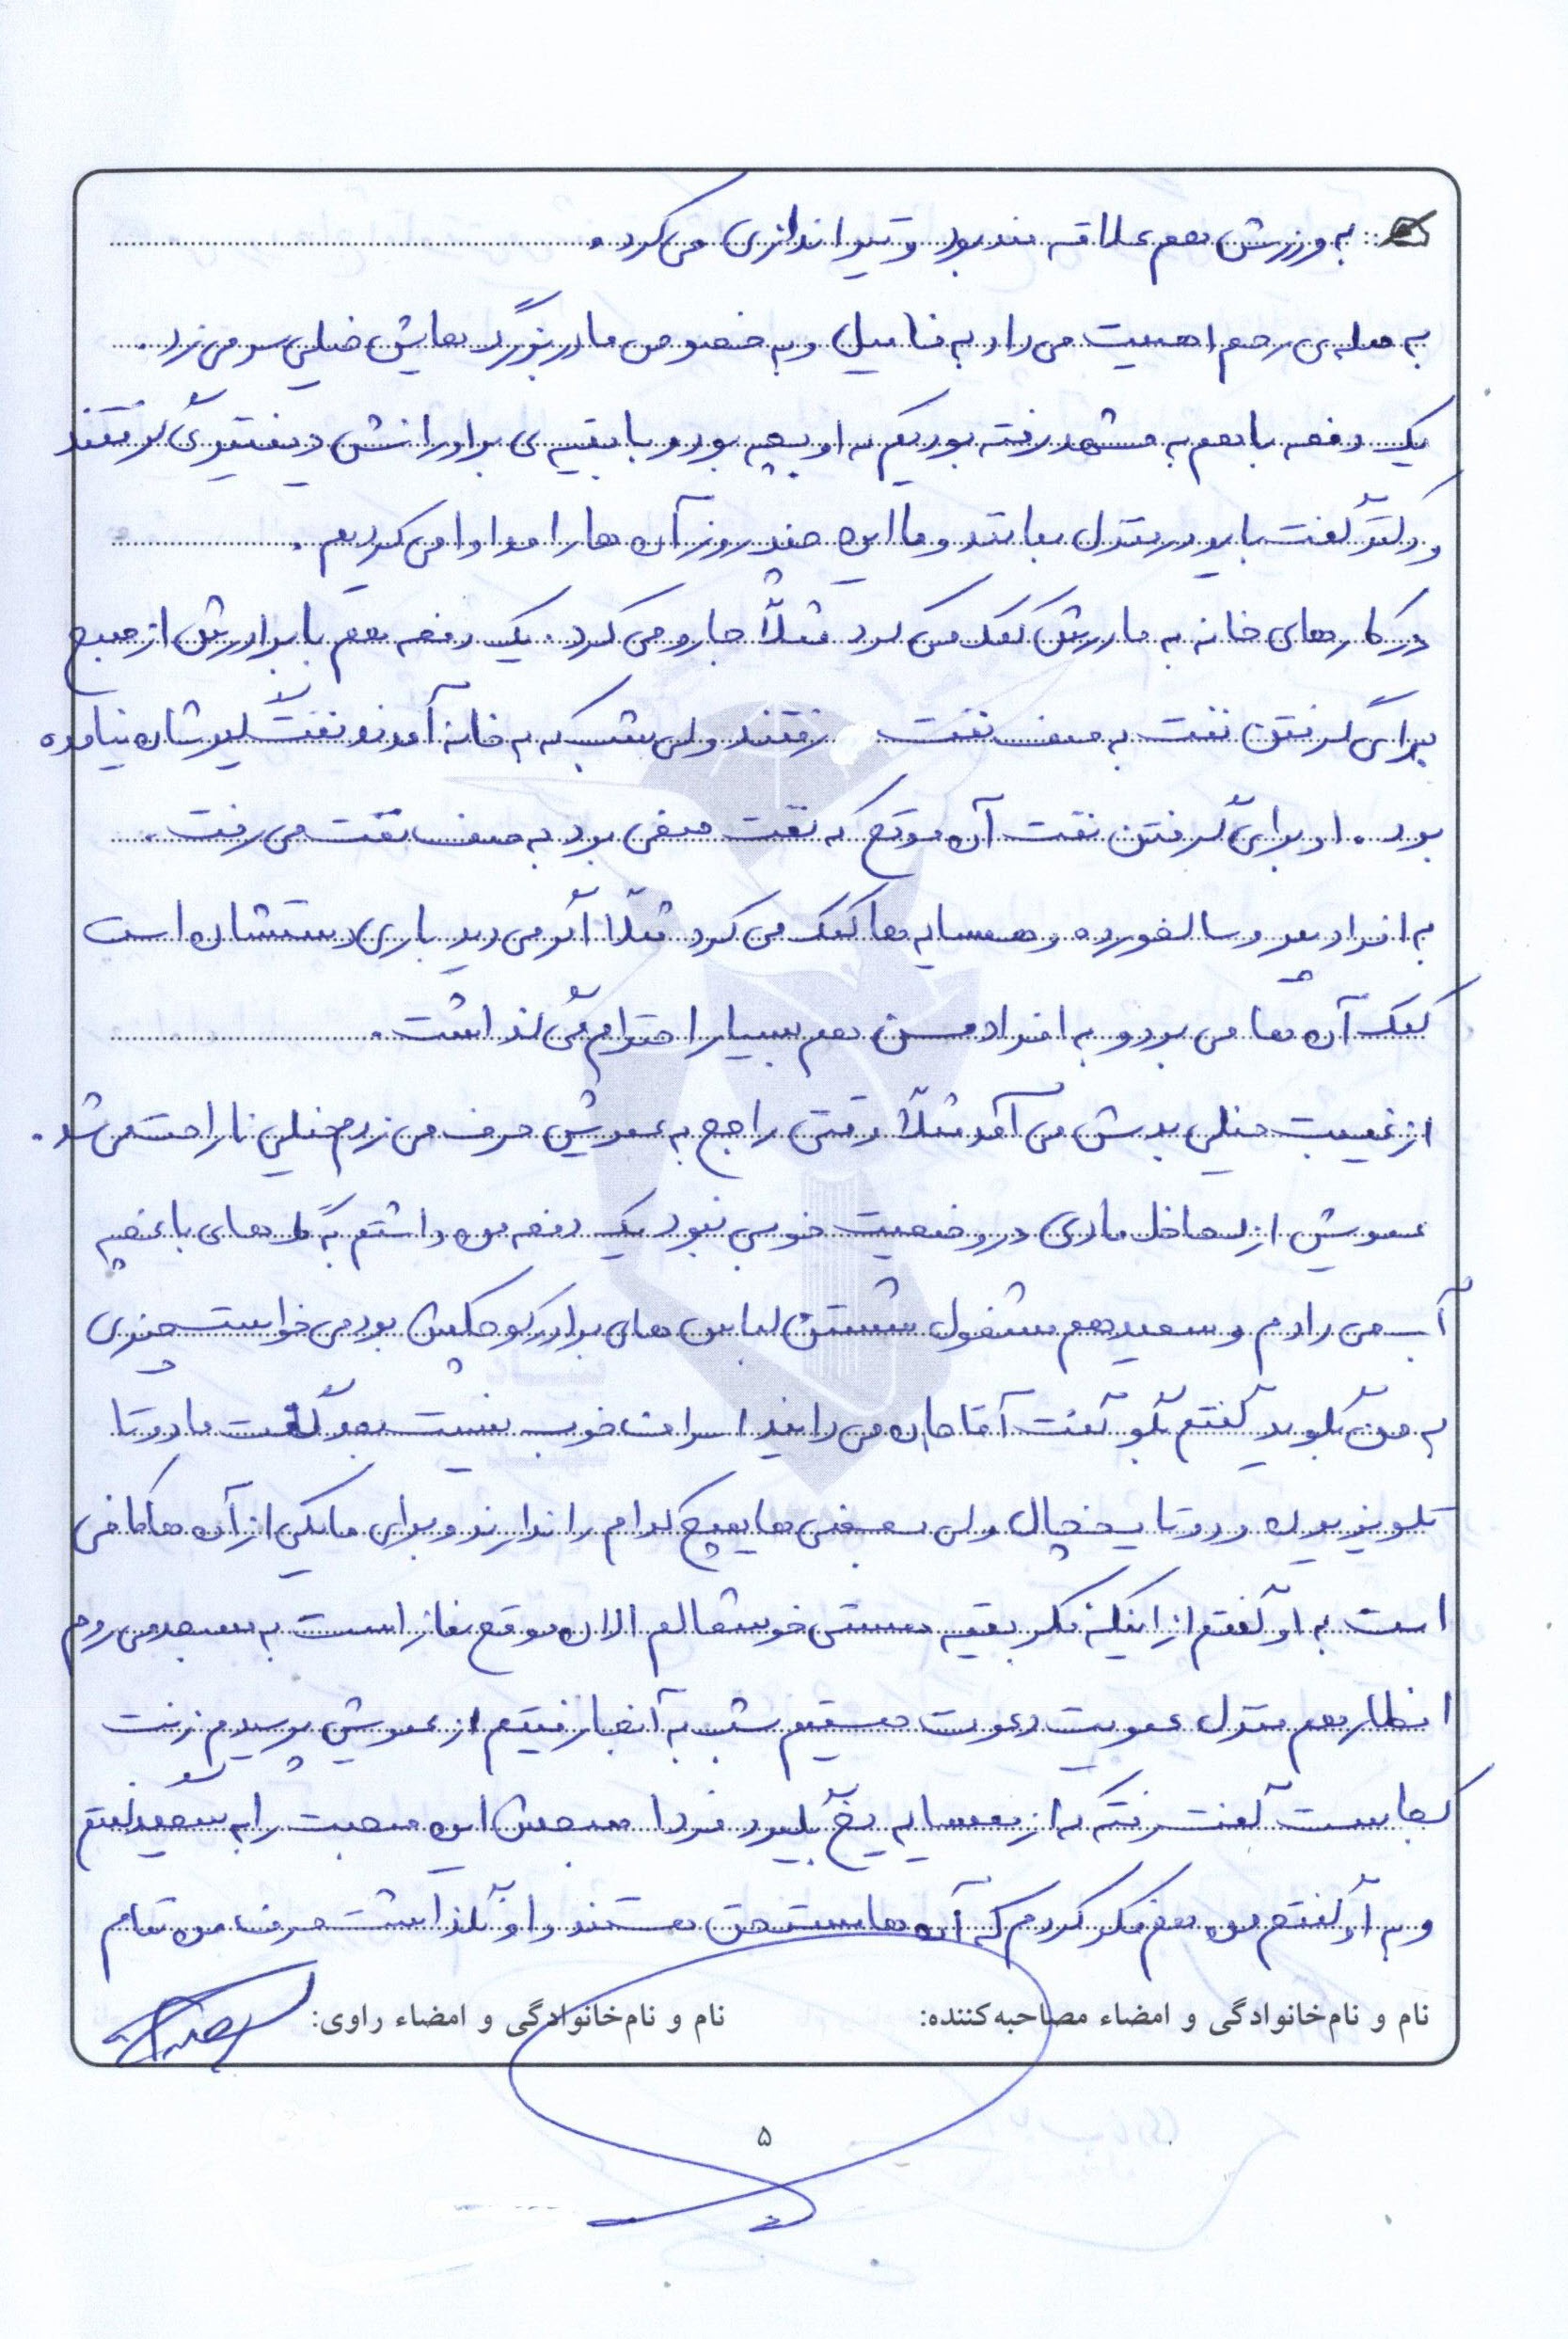 به ورزش هم علاقه مند بود و تیراندازی می کرد.
به صله ی رحم اهمیت می داد به فامیل و به خصوص مادربزرگ هایش خیلی سر می زد.
یک دفعه با هم به مشهد رفته بودیم که او بچه بود و با بقیه ی برادرانش دیفتیری گرفتند
و دکتر گفت باید در منزل بمانند و ما این چند روز آن ها را مداوا می کردیم.
در کارهای خانه به مادرش کمک می کرد مثلاً جارو می کرد. یک دفعه هم با برادرش از صبح
برای گرفتن نفت به صف نفت رفتند ولی شب که به خانه آمدند نفت گیرشان نیامده
بود. او برای گرفتن نفت آن موقع که نفت صفی بود به صف نفت می رفت.
به افراد پیر و سالخورده و همسایه ها کمک می کرد مثلاً اگر می دید باری دستشان است
کمک آن ها می برد و به افراد مسن هم بسیار احترام می گذاشت.
از غیبت خیلی بدش می آمد مثلاً وقتی راجع به عمویش حرف می زدم خیلی ناراحت می شد.
عمویش از لحاظ مادی در وضعیت خوبی نبود یک دفعه من داشتم به گل های باغچه
آب می دادم و سعید هم مشغول شستن لباس های برادر کوچکش بود می خواست چیزی
به من بگوید گفتم بگو گفت آقا جان می دانید اسراف خوب نیست بعد گفت ما دو تا
تلویزیون و دو تا یخچال ولی بعضی ها هیچ کدام را ندارند و برای ما یکی از آن ها کافی
است به او گفتم از اینکه فکر بقیه هستی خوشحالم الان موقع نماز است به مسجد می روم
افطار هم منزل عمویت دعوت هستیم شب به آنجا رفتیم از عمویش پرسیدم زنت
کجاست گفت رفته که از همسایه یخ بگیرد فردا صبحش این صحبت را به سعید گفتم
و به او گفتم من هم فکر کردم که آن ها مستحق هستند و او نگذاشت حرف من تمام
نام و نام‌خانوادگی و امضاء مصاحبه‌کننده: نام و نام‌خانوادگی و امضاء راوی:
۵